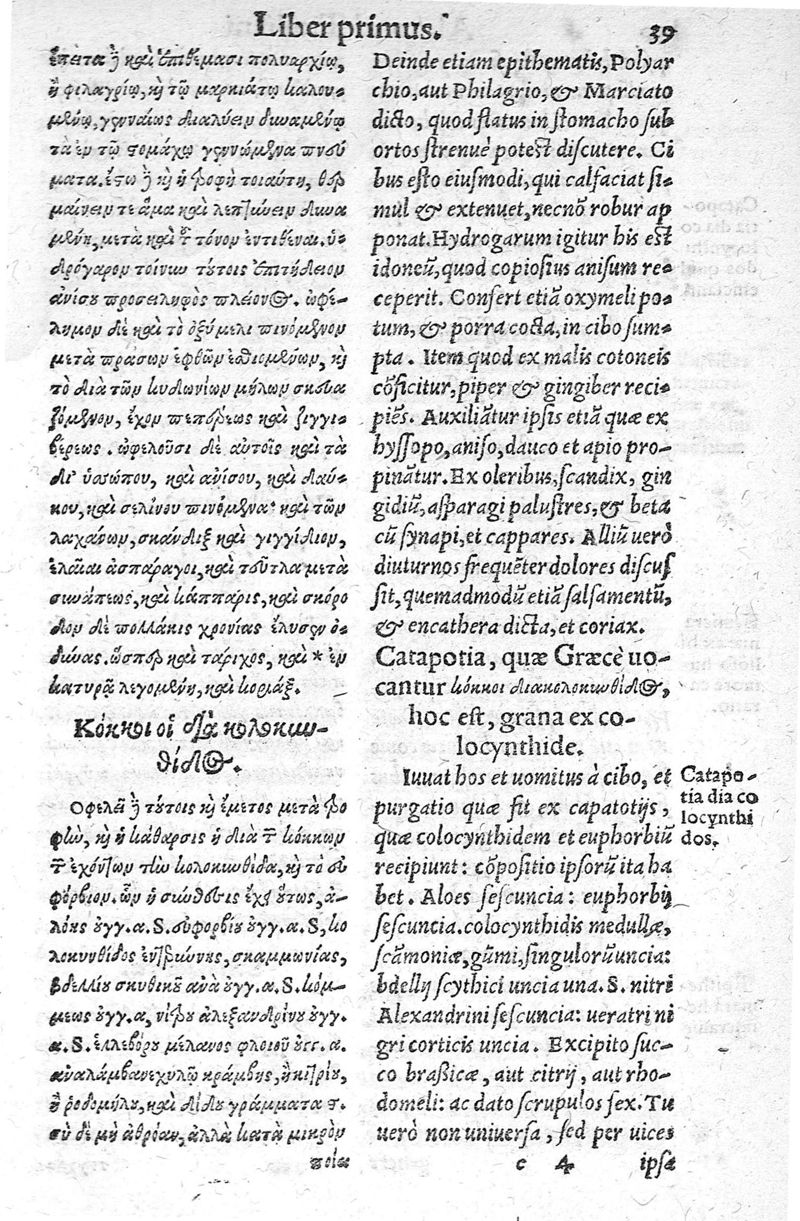 Liber primus. 39
ἔπειτα ἢ καὶ ἐπιθέμασι πολυαρχίῳ,
ἢ φιλαγρίῳ, κὴ τῷ μαρκιάτῳ καλου-
μένῳ, γενναίως διαλύειν δυναμένῳ
τὰ ἐν τῷ στομάχῳ γεννώμενα πνεύ
ματα. ἔστω ἢ κὴ ἡ τροφὴ τοιαύτη, θερ
μαίνειν τε ἅμα καὶ λεπτύνειν δυνα
μένη, μετὰ καὶ τ τόνον ἐντιθέναι. ὑ-
δρόγαρον τοίνυν τούτοις ἐπιτήδειον
ἀνίσου προσειληφὸς πλέονος. ὠφέ-
λιμον δὲ καὶ τὸ ὀξύμελι πινόμενον
μετὰ πράσων ἑφθῶν ἐσθιομένων, κὴ
τὸ διὰ τῶν κυδωνίων μήλων σκευα
ζόμενον, ἔχον πεπέρεως καὶ ζιγγι-
βέρεως. ὠφελοῦσι δὲ αὐτοῖς καὶ τὰ
δι' ὑσσώπου, καὶ ἀνίσου, καὶ δαύ-
κου, καὶ σελίνου πινόμενα· καὶ τῶν
λαχάνων, σκάνδιξ καὶ γιγγίδιον,
ἕλειαι ἀσπάραγοι, καὶ τεῦτλα μετὰ
σινάπεως, καὶ κάππαρις, καὶ σκόρο
δον δὲ πολλάκις χρονίας ἔλυσεν ὀ-
δύνας. ὥσπερ καὶ τάριχος, καὶ * ἐν
κατυρᾷ λεγομένη, καὶ κορίαξ.
Κόκκοι οἱ διὰ κολοκυν-
θίδος.
Οφελεῖ ἢ τούτοις κὴ ἔμετος μετὰ τρο
φὼ, κὴ ἡ κάθαρσις ἡ διὰ τ κόκκων
τ ἐχόντων τὴν κολοκυνθίδα, κὴ τὸ εὐ
φόρβιον. ὧν ἡ σύνθεσις ἔχει οὕτως, ἀ-
λόης ουγγ. α. S. εὐφορβίου ουγγ. α. S. κο
λοκυνθίδος ἐντεριώνης, σκαμμωνίας,
βδελλίου σκυθικοῦ ἀνὰ ουγγ. α. S. κόμ-
μεως ουγγ. α, νίτρου ἀλεξανδρίνου ουγγ.
α. S. ἑλλεβόρου μέλανος φλοιοῦ ουγγ. α.
ἀναλάμβανε χυλῷ κράμβης, ἢ κιτρίου,
ἢ ῥοδομήλου, καὶ δίδου γράμματα ϛ.
σὺ δὲ μὴ ἀθρόαν, ἀλλὰ κατὰ μικρὸν
ποία
Deinde etiam epithematis, Polyar
chio, aut Philagrio, & Marciato
dicto, quod flatus in stomacho sub
ortos strenuè potest discutere. Ci
bus esto eiusmodi, qui calfaciat si-
mul & extenuet, necnõ robur ap
ponat. Hydrogarum igitur his est
idoneũ, quod copiosius anisum re-
ceperit. Confert etiã oxymeli po-
tum, & porra cocta, in cibo sum-
pta. Item quod ex malis cotoneis
cõficitur, piper & gingiber reci-
piẽs. Auxiliãtur ipsis etiã quæ ex
hyssopo, aniso, dauco et apio pro-
pinãtur. Ex oleribus, scandix, gin
gidiũ, asparagi palustres, & beta
cũ synapi, et cappares. Alliũ uerò
diuturnos frequẽter dolores discus
sit, quemadmodũ etiã salsamentũ,
& encathera dicta, et coriax.
Catapotia, quæ Græcè uo-
cantur κόκκοι διακολοκυνθίδος,
hoc est, grana ex co-
locynthide.
Iuuat hos et uomitus à cibo, et
purgatio quæ fit ex capatotijs,
quæ colocynthidem et euphorbiũ
recipiunt: cõpositio ipsorũ ita ha
bet. Aloes sescuncia: euphorbij
sescuncia. colocynthidis medullæ,
scãmoniæ, gũmi, singulorũ uncia:
bdellij scythici uncia una. S. nitri
Alexandrini sescuncia: ueratri ni
gri corticis uncia. Excipito suc-
co brassicæ, aut citrij, aut rho-
domeli: ac dato scrupulos sex. Tu
uerò non uniuersa, sed per uices
c 4 ipsa
Catapo-
tia dia co
locynthi
dos.